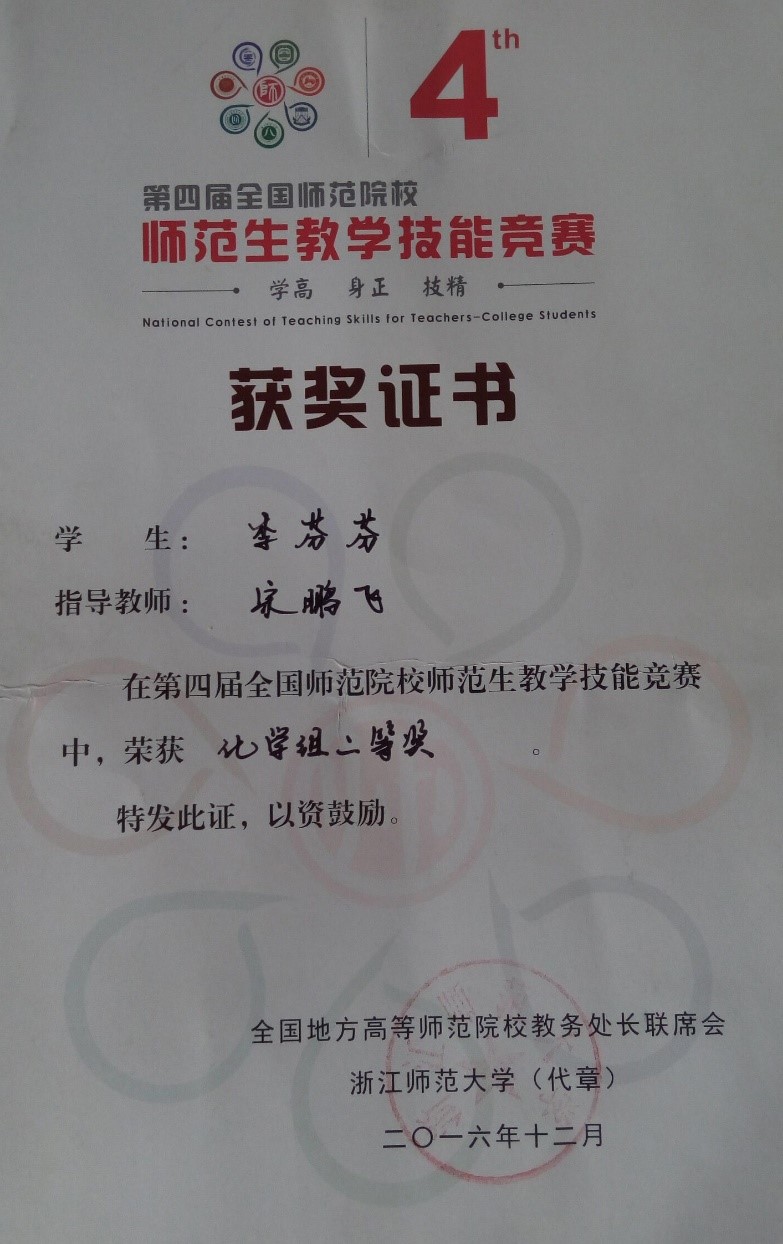 师
4th
第四届全国师范院校
师范生教学技能竞赛
学高 身正 技精
National Contest of Teaching Skills for Teachers-College Students
获奖证书
学 生： 李芬芬
指导教师： 宋鹏飞
在第四届全国师范院校师范生教学技能竞赛
中，荣获 化学组二等奖 。
特发此证，以资鼓励。
全国地方高等师范院校教务处长联席会
浙江师范大学（代章）
二〇一六年十二月